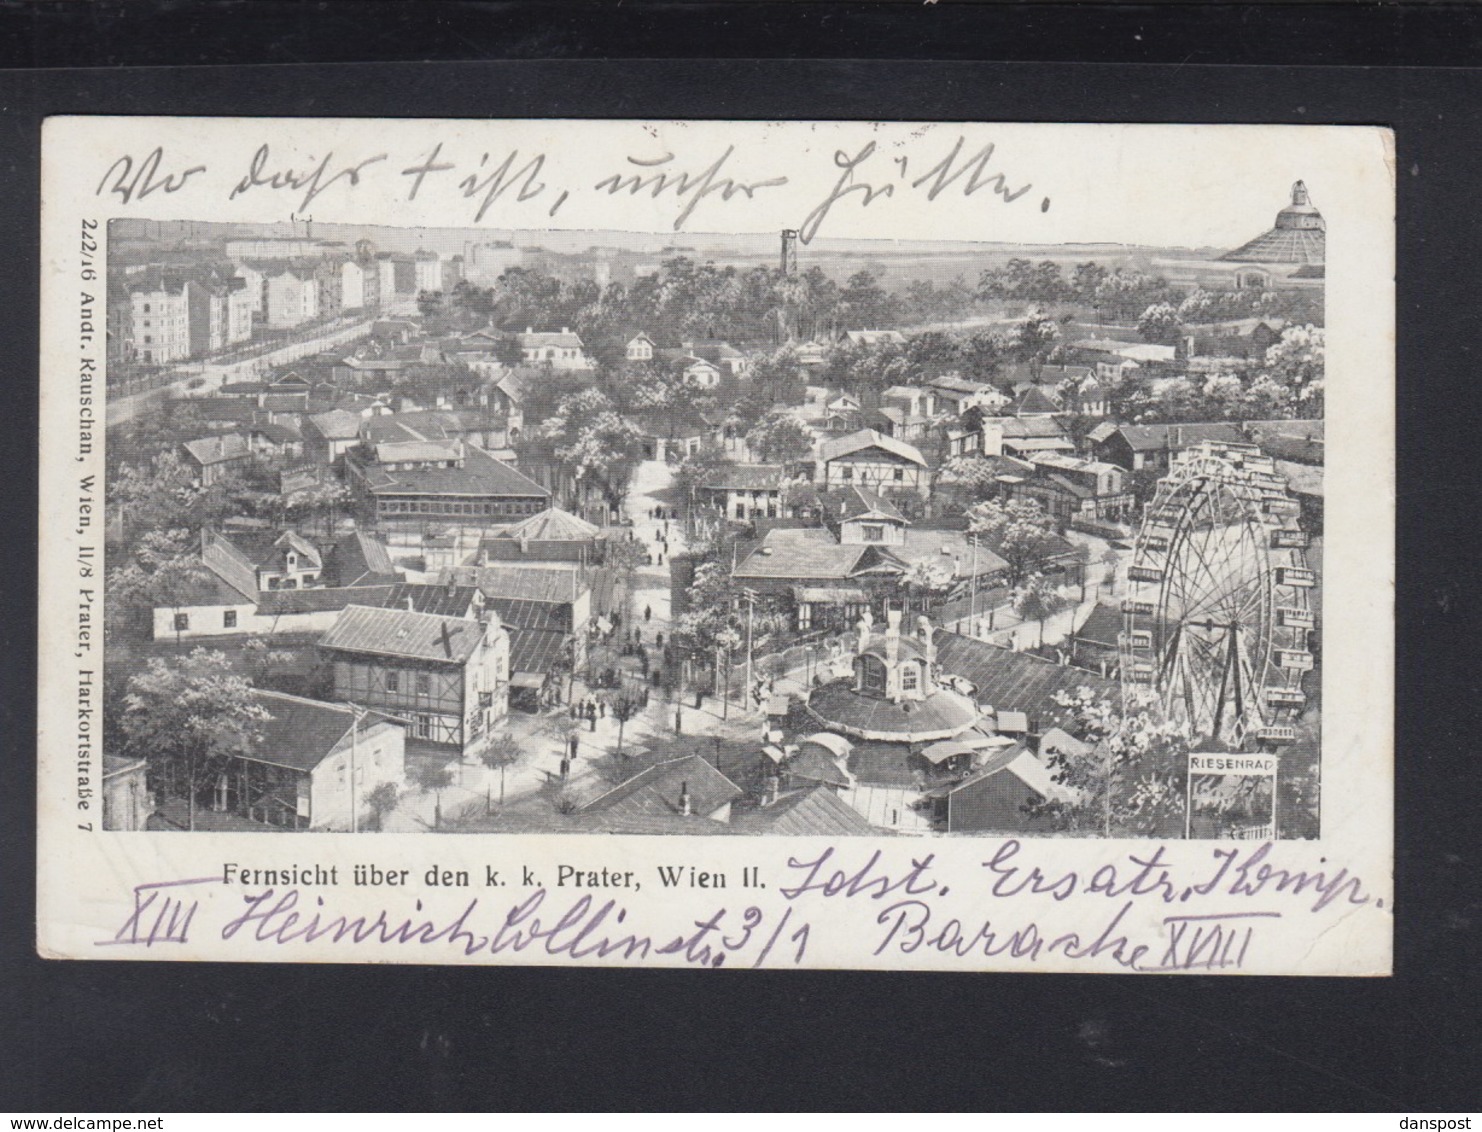 Wo das + ist, unser Hütte.
222/16 Andr. Rauschan, Wien, II/8 Prater, Harkortstraße 7
RIESENRAD
Fernsicht über den k. k. Prater, Wien II. Ldst. Ersatz, Komp.
XIII Heinrich Collinstr. 3/1 Baracke XVIII
danspost